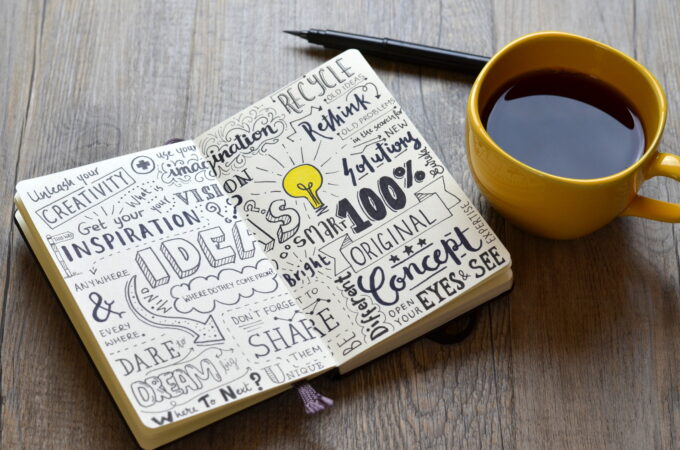 Unleash your
CREATIVITY
use your
imagination
What is
your
VISION
?
Get your
INSPIRATION
ANYWHERE
&
EVERY
WHERE
IDEAS
MIND
WHERE DO THEY COME FROM?
DARE
TO
DREAM
big
DON'T FORGET
TO
SHARE
THEM
UNIQUE
WHERE TO NEXT?
RECYCLE
OLD IDEAS
Rethink
OLD PROBLEMS
in the search for
NEW
Solutions
SMART
Bright
100%
ORIGINAL
Concept
BE
Different
OPEN
YOUR
EYES & SEE
EXPERTISE